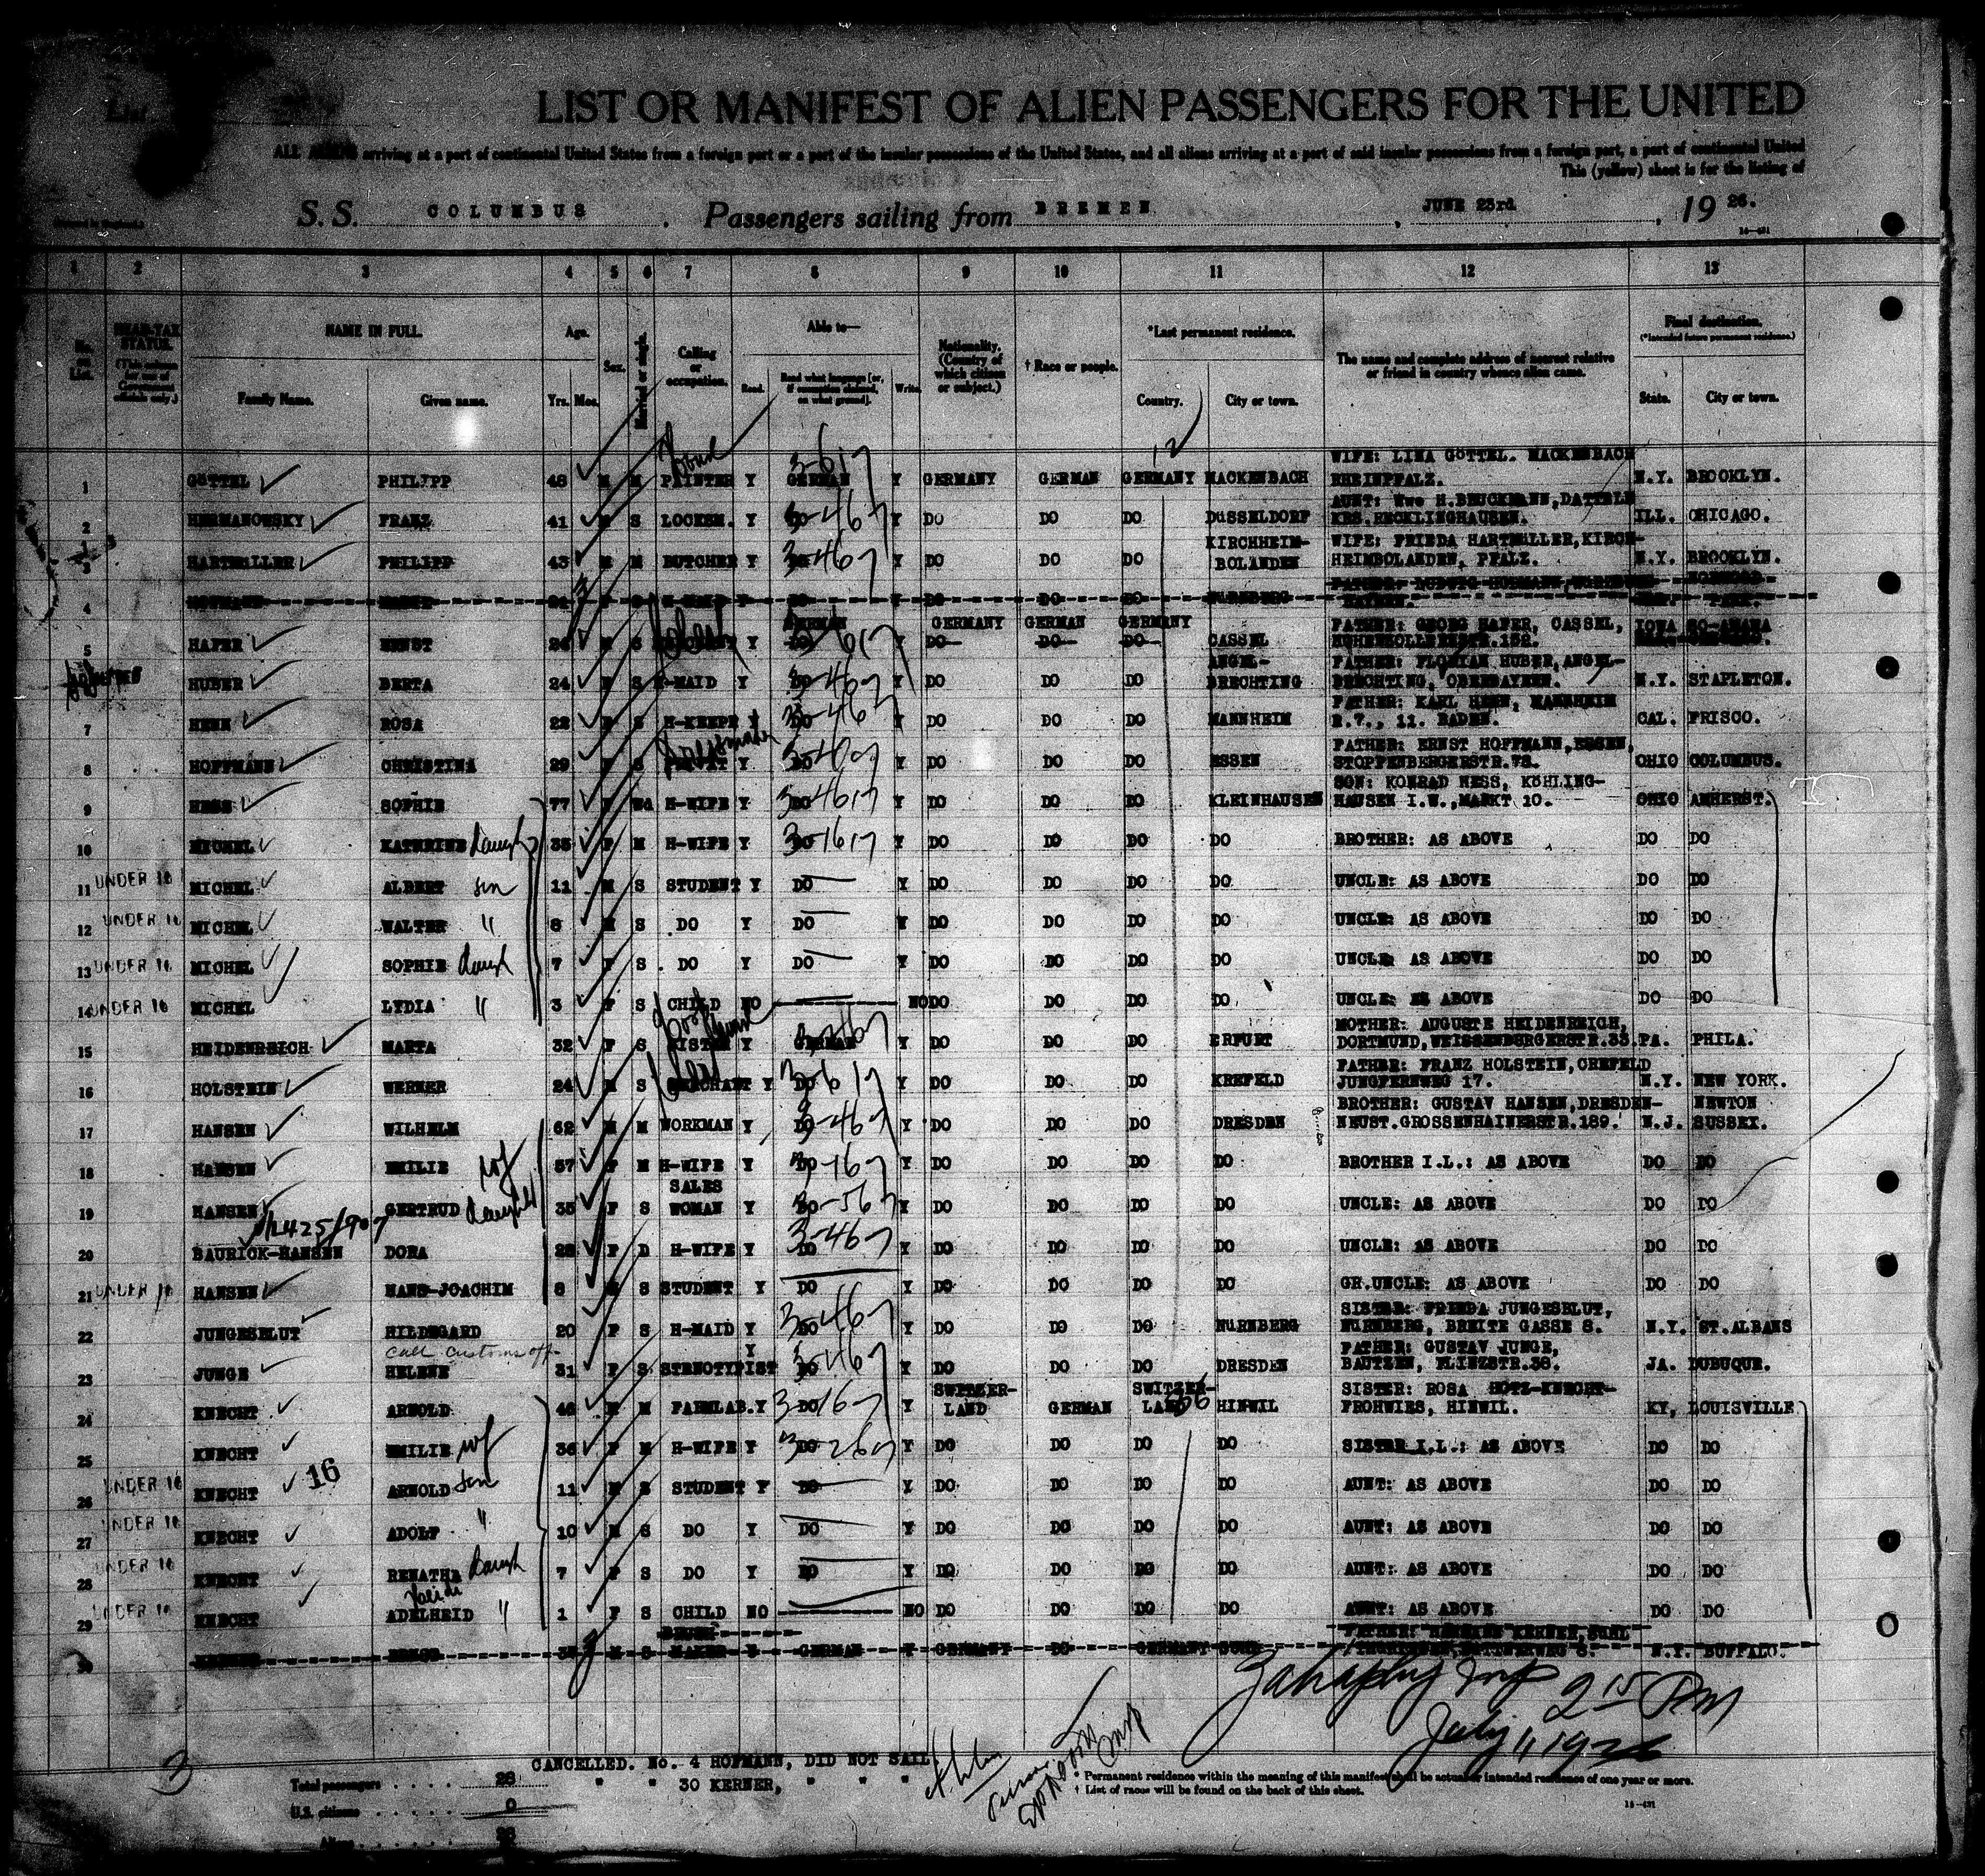 List
LIST OR MANIFEST OF ALIEN PASSENGERS FOR THE UNITED
ALL ALIENS arriving at a port of continental United States from a foreign port or a port of the insular possessions of the United States, and all aliens arriving at a port of said insular possessions from a foreign port, a port of continental United
This (yellow) sheet is for the listing of
S. S. COLUMBUS . Passengers sailing from BREMEN , JUNE 23rd , 19 26.
1 2 3 4 5 6 7 8 9 10 11 12 13
No. on List. HEAD-TAX STATUS. (This column for use of Government officials only.) NAME IN FULL. Age. Sex. Married or single. Calling or occupation. Able to— Nationality. (Country of which citizen or subject.) † Race or people. *Last permanent residence. The name and complete address of nearest relative or friend in country whence alien came. Final destination. (*Intended future permanent residence.)
Family Name. Given name. Yrs. Mos. Read. Read what language [or, if exemption claimed, on what ground]. Write. Country. City or town. State. City or town.
1 GöTTEL PHILIPP 48 M M PAINTER Y GERMAN Y GERMANY GERMAN GERMANY MACKENBACH WIFE: LINA GöTTEL. MACKENBACH RHEINPFALZ. N.Y. BROOKLYN.
2 HERMANOWSKY FRANZ 41 M S LOCKSM. Y DO Y DO DO DO DüSSELDORF AUNT: Wwe H.BRUCKMANN, DATTELN KRS.RECKLINGHAUSEN. ILL. CHICAGO.
3 HARTMüLLER PHILIPP 43 M M BUTCHER Y DO Y DO DO DO KIRCHHEIM-BOLANDEN WIFE: FRIEDA HARTMüLLER, KIRCH-HEIMBOLANDEN, PFALZ. N.Y. BROOKLYN.
4
5 HAFER ERNST 26 M S Y GERMAN Y GERMANY GERMAN GERMANY CASSEL FATHER: GEORG HAFER, CASSEL, HOHENZOLLERNSTR.152. IOWA SO-AMANA
HUBER BERTA 24 F S H-MAID Y DO Y DO DO DO ANGEL-BRECHTING FATHER: FLORIAN HUBER, ANGEL-BRECHTING, OBERBAYERN. N.Y. STAPLETON.
7 HENN ROSA 22 F S H-KEEPR Y DO Y DO DO DO MANNHEIM FATHER: KARL HENN, MANNHEIM R.7., 11. BADEN. CAL. FRISCO.
8 HOFFMANN CHRISTINA 29 F S Dressmaker Y DO Y DO DO DO ESSEN FATHER: ERNST HOFFMANN, ESSEN, STOPPENBERGERSTR.78. OHIO COLUMBUS.
9 HESS SOPHIE 77 F Wd H-WIFE Y DO Y DO DO DO KLEINHAUSEN SON: KONRAD HESS, KöHLING-HAUSEN I.W.,MARKT 10. OHIO AMHERST.
10 MICHEL KATHRINE daugh 35 F M H-WIFE Y DO Y DO DO DO DO BROTHER: AS ABOVE DO DO
11 UNDER 16 MICHEL ALBERT son 11 M S STUDENT Y DO Y DO DO DO DO UNCLE: AS ABOVE DO DO
12 UNDER 16 MICHEL WALTER " 8 M S DO Y DO Y DO DO DO DO UNCLE: AS ABOVE DO DO
13 UNDER 16 MICHEL SOPHIE daugh 7 F S DO Y DO Y DO DO DO DO UNCLE: AS ABOVE DO DO
14 UNDER 16 MICHEL LYDIA " 3 F S CHILD NO NO DO DO DO DO UNCLE: AS ABOVE DO DO
15 HEIDENREICH MARTA 32 F S SISTER Y GERMAN Y DO DO DO ERFURT MOTHER: AUGUSTE HEIDENREICH, DORTMUND, WEISSENBURGERSTR.33. PA. PHILA.
16 HOLSTEIN WERNER 24 M S MERCHANT Y DO Y DO DO DO KREFELD FATHER: FRANZ HOLSTEIN, CREFELD JUNGFERNWEG 17. N.Y. NEW YORK.
17 HANSEN WILHELM 62 M M WORKMAN Y DO Y DO DO DO DRESDEN BROTHER: GUSTAV HANSEN, DRESDEN-NEUST.GROSSENHAINERSTR.189. N.J. NEWTON SUSSEX.
18 HANSEN EMILIE wf 57 F M H-WIFE Y DO Y DO DO DO DO BROTHER I.L.: AS ABOVE DO DO
19 HANSEN GERTRUD daught 35 F S SALES WOMAN Y DO Y DO DO DO DO UNCLE: AS ABOVE DO DO
20 BAURICK-HANSEN DORA 28 F D H-WIFE Y DO Y DO DO DO DO UNCLE: AS ABOVE DO DO
21 UNDER 16 HANSEN HANS-JOACHIM 8 M S STUDENT Y DO Y DO DO DO DO GR.UNCLE: AS ABOVE DO DO
22 JUNGESBLUT HILDEGARD 20 F S H-MAID Y DO Y DO DO DO NüRNBERG SISTER: FRIEDA JUNGESBLUT, NüRNBERG, BREITE GASSE 8. N.Y. ST.ALBANS
23 JUNGE HELENE 31 F S STENOTYPIST Y DO Y DO DO DO DRESDEN FATHER: GUSTAV JUNGE, BAUTZEN, FLINZSTR.38. JA. DUBUQUE.
24 KNECHT ARNOLD 46 M M FARMLAB. Y DO Y SWITZER-LAND GERMAN SWITZER-LAND HINWIL SISTER: ROSA HOTZ-KNECHT-FROHWIES, HINWIL. KY, LOUISVILLE
25 KNECHT EMILIE wf 36 F M H-WIFE Y DO Y DO DO DO DO SISTER I.L.: AS ABOVE DO DO
26 UNDER 16 KNECHT 16 ARNOLD son 11 M S STUDENT Y DO Y DO DO DO DO AUNT: AS ABOVE DO DO
27 UNDER 16 KNECHT ADOLF " 10 M S DO Y DO Y DO DO DO DO AUNT: AS ABOVE DO DO
28 UNDER 16 KNECHT RENATHE daugh 7 F S DO Y DO Y DO DO DO DO AUNT: AS ABOVE DO DO
29 UNDER 16 KNECHT ADELHEID " 1 F S CHILD NO NO DO DO DO DO AUNT: AS ABOVE DO DO
30 MAKER GERMAN Y GERMANY DO GERMANY SUHL FATHER: HERMANN KERNER, SUHL N.Y. BUFFALO.
2 15 PM
July 1, 1926
CANCELLED. No. 4 HOFMANN, DID NOT SAIL
" " 30 KERNER, " " "
3
Total passengers 28
U.S. citizens 0
Aliens 28
* Permanent residence within the meaning of this manifest shall be actual or intended residence of one year or more.
† List of races will be found on the back of this sheet.